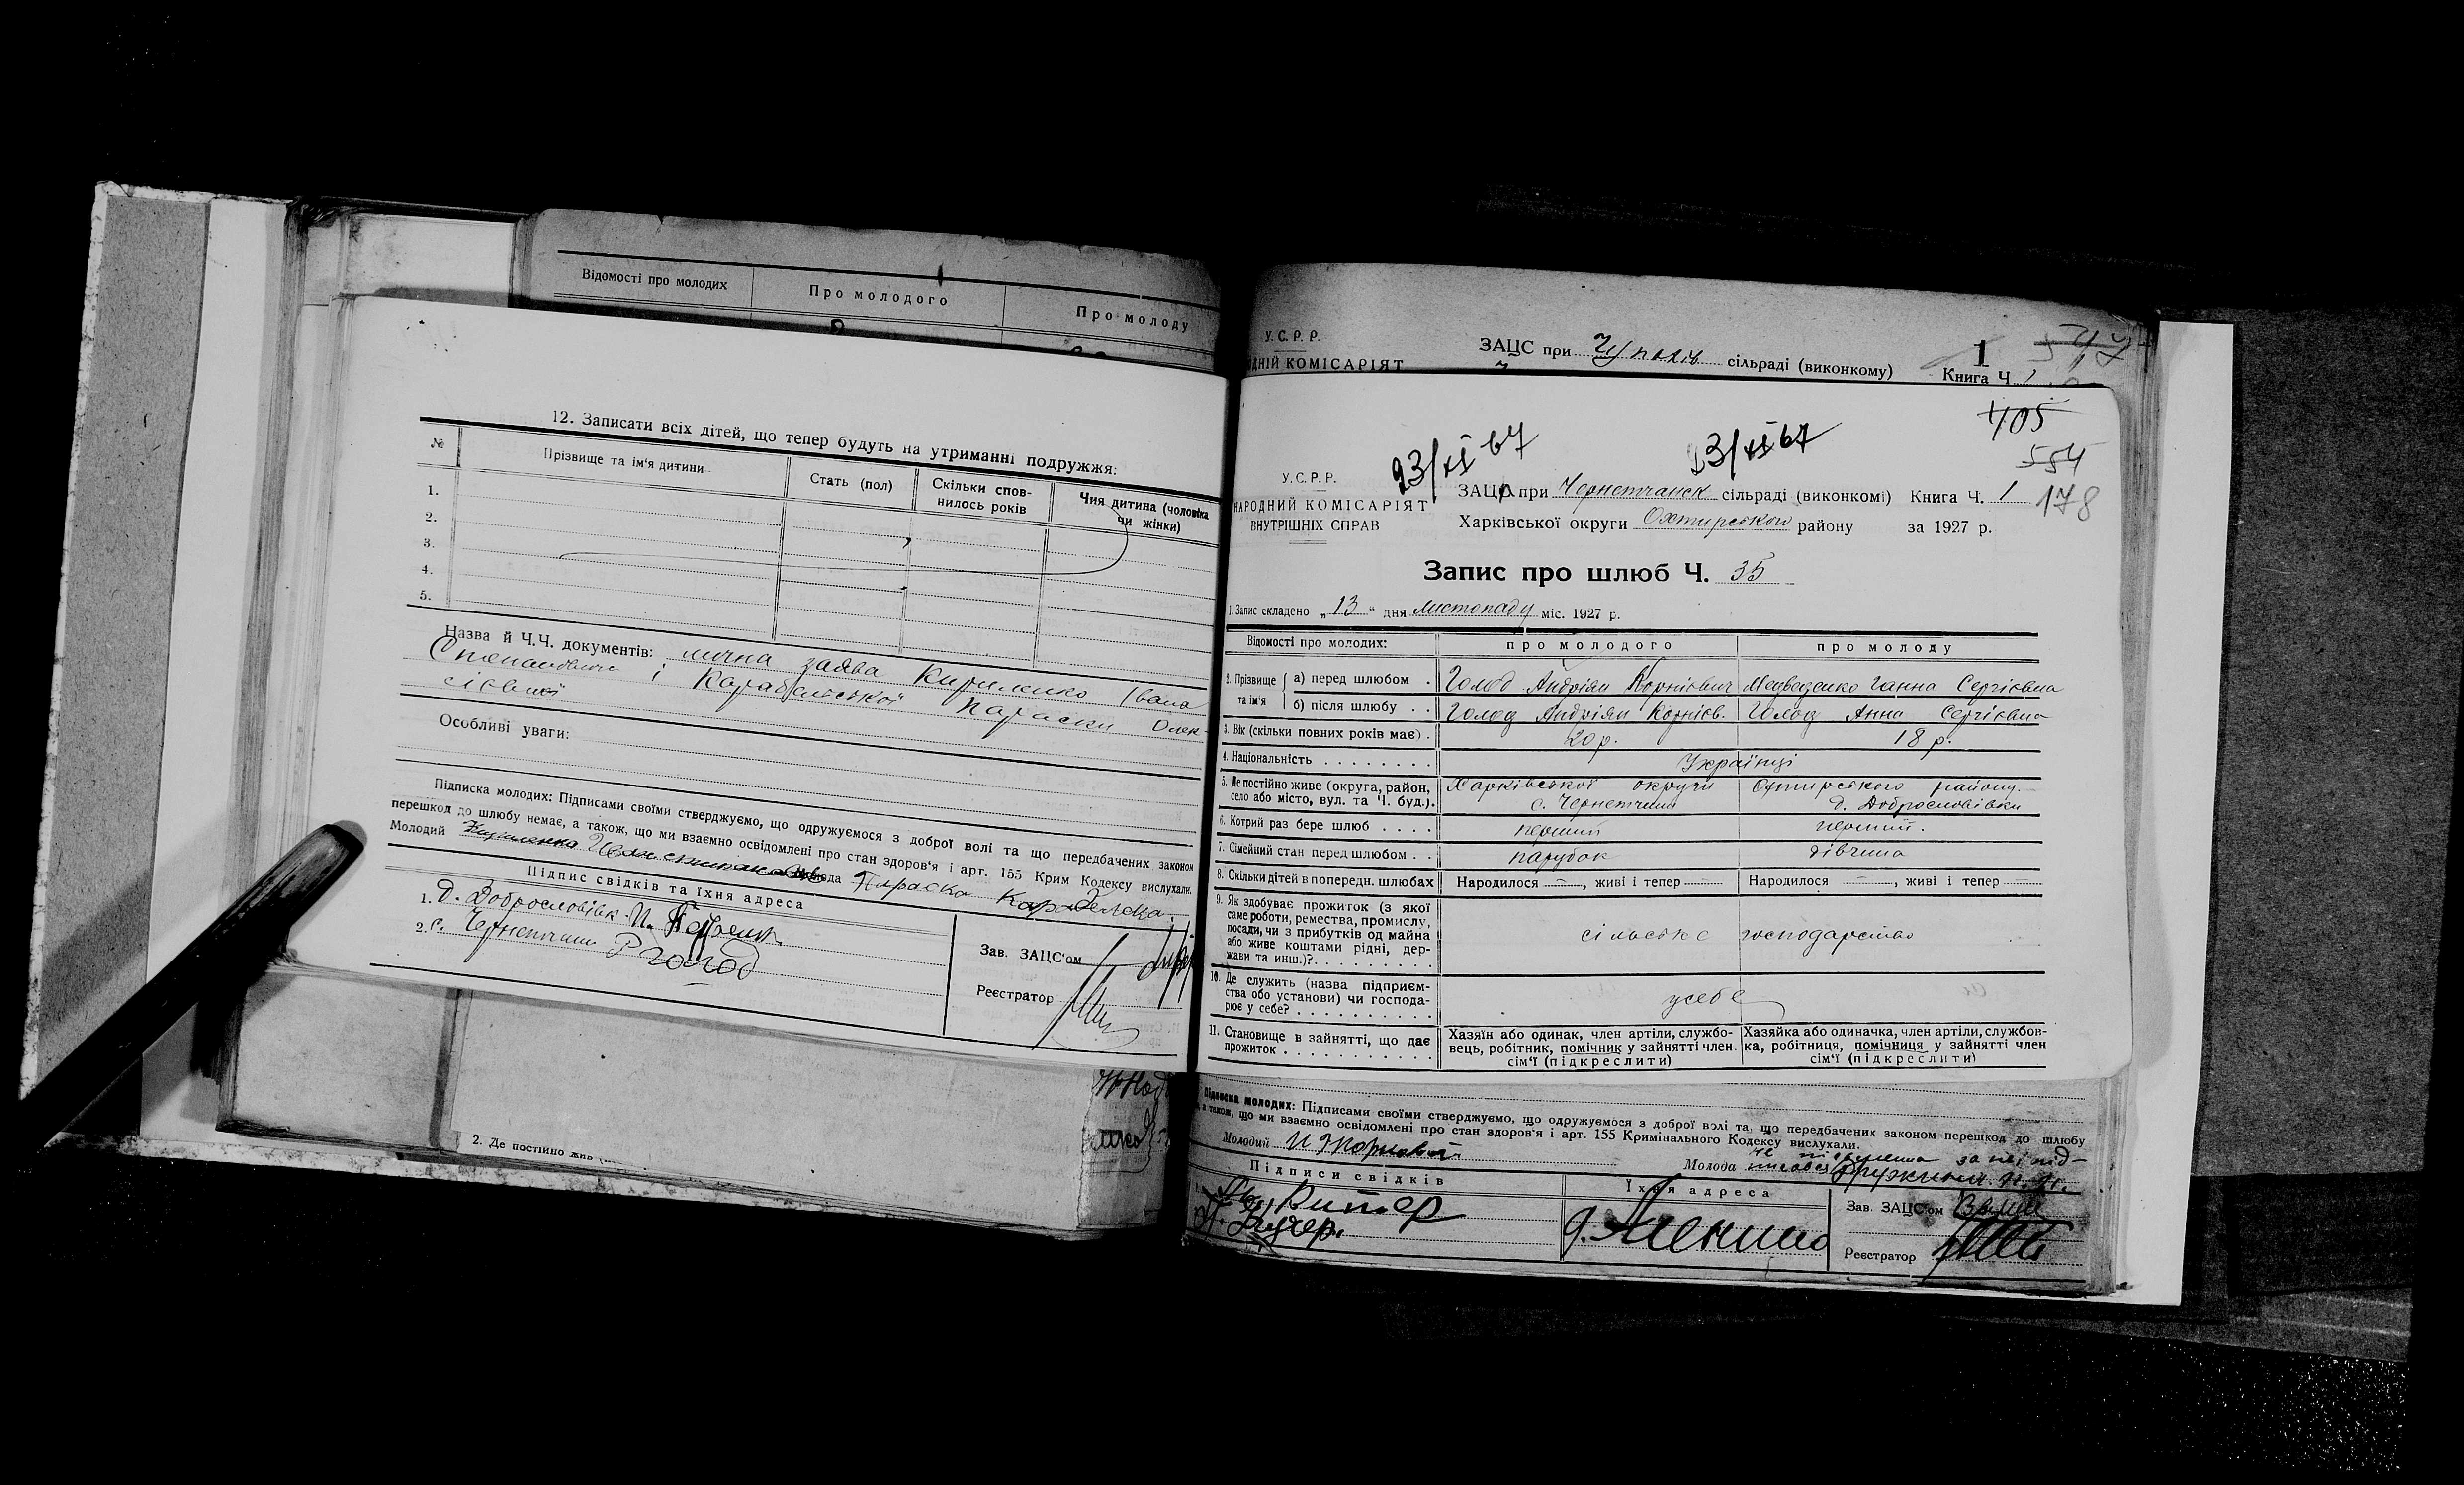 Відомості про молодих
Про молодого
Про молоду
12. Записати всіх дітей, що тепер будуть на утриманні подружжя:
№
Прізвище та ім'я дитини
Стать (пол)
Скільки спов-
нилось років
Чия дитина (чоловіка
чи жінки)
1.
2.
3.
4.
5.
Назва й Ч.Ч. документів: лична заява Кириленко Івана
Степановича і Карабельської Параски Олек-
сіївної
Особливі уваги:
Підписка молодих: Підписами своїми стверджуємо, що одружуємося з доброї волі та що передбачених законом
перешкод до шлюбу немає, а також, що ми взаємно освідомлені про стан здоров'я і арт. 155 Крим Кодексу вислухали.
Молодий Молода Параска
Підпис свідків та їхня адреса
1. д. Доброславівк. И.
2. с. Чернетчина Р Голод
Зав. ЗАЦС'ом
Реєстратор
2. Де постійно жив
У.С.Р.Р.
ДНІЙ КОМІСАРІЯТ
ЗАЦС при сільраді (виконкому)
1
Книга Ч. 1
547
405
554
178
23/XI 67
23/XI 67
У.С.Р.Р.
НАРОДНИЙ КОМІСАРІЯТ
ВНУТРІШНІХ СПРАВ
ЗАЦС при Чернетчанск сільраді (виконкомі) Книга Ч. 1
Харківської округи Охтирського району за 1927 р.
Запис про шлюб Ч. 35
1. Запис складено „13" дня листопаду міс. 1927 р.
Відомості про молодих:
про молодого
про молоду
2. Прізвище та ім'я
а) перед шлюбом . Голод Андріян Корнієвич Медведенко Ганна Сергієвна
б) після шлюбу . . Голод Андріян Корнієв. Голод Анна Сергієвна
3. Вік (скільки повних років має) . 20 р. 18 р.
4. Національність . . . . . . . . Українці
5. Де постійно живе (округа, район, Харківської округи Охтирського району.
село або місто, вул. та Ч. буд.). с. Чернетчина д. Доброславівки
6. Котрий раз бере шлюб . . . . перший перший.
7. Сімейний стан перед шлюбом . . парубок дівчина
8. Скільки дітей в попередн. шлюбах Народилося —, живі і тепер — Народилося —, живі і тепер —
9. Як здобуває прожиток (з якої
саме роботи, ремества, промислу,
посади, чи з прибутків од майна
або живе коштами рідні, дер-
жави та инш.)?. . . . . . . . .
сільське господарство
10. Де служить (назва підприєм-
ства або установи) чи господа-
рює у себе? . . . . . . . . . .
усебе
11. Становище в зайнятті, що дає
прожиток . . . . . . . . . . .
Хазяїн або одинак, член артіли, службо-
вець, робітник, помічник у зайнятті член
сім'ї (підкреслити)
Хазяйка або одиначка, член артіли, службов-
ка, робітниця, помічниця у зайнятті член
сім'ї (підкреслити)
Підписка молодих: Підписами своїми стверджуємо, що одружуємося з доброї волі та, що передбачених законом перешкод до шлюбу
, а також, що ми взаємно освідомлені про стан здоров'я і арт. 155 Кримінального Кодексу вислухали.
Молодий
Молода
Підписи свідків
Їхня адреса
Зав. ЗАЦС'ом
Реєстратор